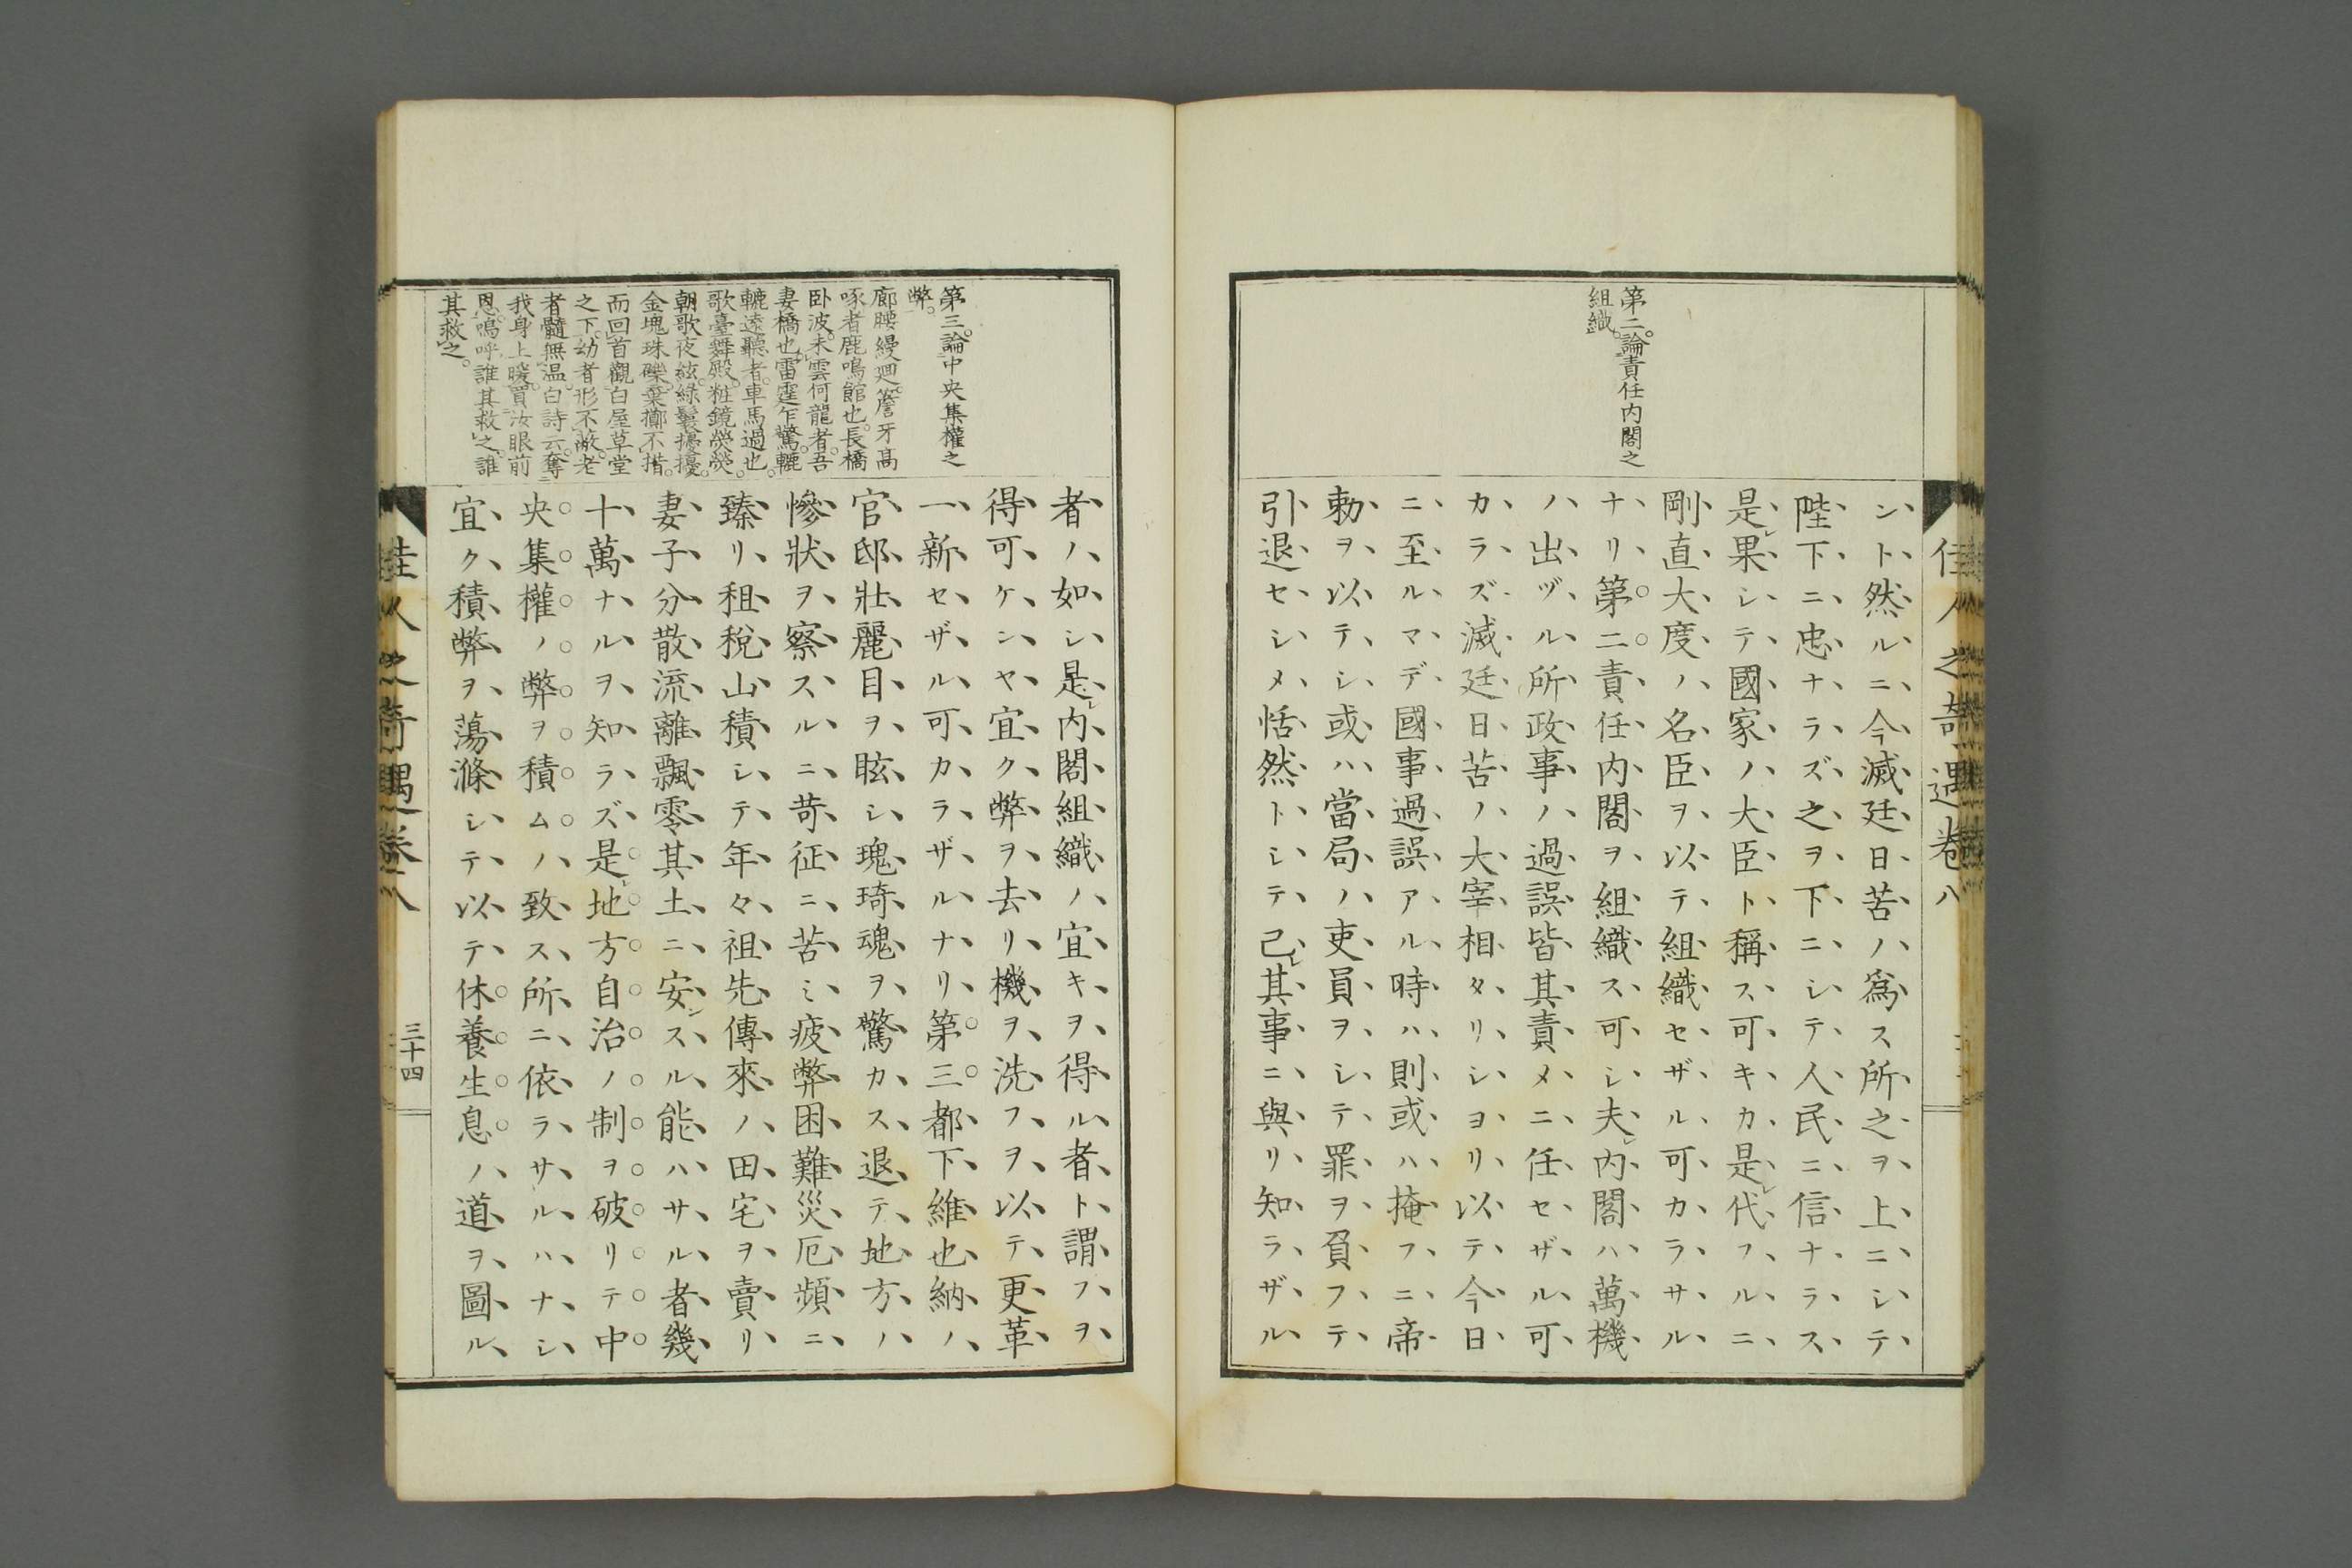 佳人之奇遇卷八
第二論責任内閣之
組織
ント然ルニ今滅廷日苦ノ爲ス所之ヲ上ニシテ
陛下ニ忠ナラズ之ヲ下ニシテ人民ニ信ナラス
是レ果シテ國家ノ大臣ト稱ス可キカ是レ代フルニ
剛直大度ノ名臣ヲ以テ組織セザル可カラサル
ナリ第二責任内閣ヲ組織ス可シ夫レ内閣ハ萬機
ノ出ヅル所政事ノ過誤皆其責メニ任セザル可
カラズ滅廷日苦ノ大宰相タリシヨリ以テ今日
ニ至ルマデ國事過誤アル時ハ則或ハ掩フニ帝
勅ヲ以テシ或ハ當局ノ吏員ヲシテ罪ヲ負フテ
引退セシメ恬然トシテ己レ其事ニ與リ知ラザル
第三論中央集權之
弊。
廊腰縵廻。簷牙高
啄者鹿鳴館也。長橋
卧波。未雲何龍者。吾
妻橋也雷霆乍驚。轆
轆遠聽者。車馬過也。
歌臺舞殿。粧鏡熒熒
朝歌夜絃。綠鬟擾擾。
金塊珠礫。棄擲不措。
而回首觀白屋草堂
之下。幼者形不蔽。老
者髓無温。白詩云。奪
我身上暖。買汝眼前
恩。鳴呼。誰其救之。誰
其救之。
者ノ如シ是レ内閣組織ノ宜キヲ得ル者ト謂フヲ
得可ケンヤ宜ク弊ヲ去リ機ヲ洗フヲ以テ更革
一新セザル可カラザルナリ第三都下維也納ノ
官邸壯麗目ヲ眩シ瑰琦魂ヲ驚カス退テ地方ハ
慘狀ヲ察スルニ苛征ニ苦ミ疲弊困難災厄頻ニ
臻リ租稅山積シテ年々祖先傳來ノ田宅ヲ賣リ
妻子分散流離飄零其土ニ安ンスル能ハサル者幾
十萬ナルヲ知ラズ是レ地方自治ノ制ヲ破リテ中
央集權ノ弊ヲ積ムノ致ス所ニ依ラサルハナシ
宜ク積弊ヲ蕩滌シテ以テ休養生息ノ道ヲ圖ル
佳人之奇遇卷八
三十四